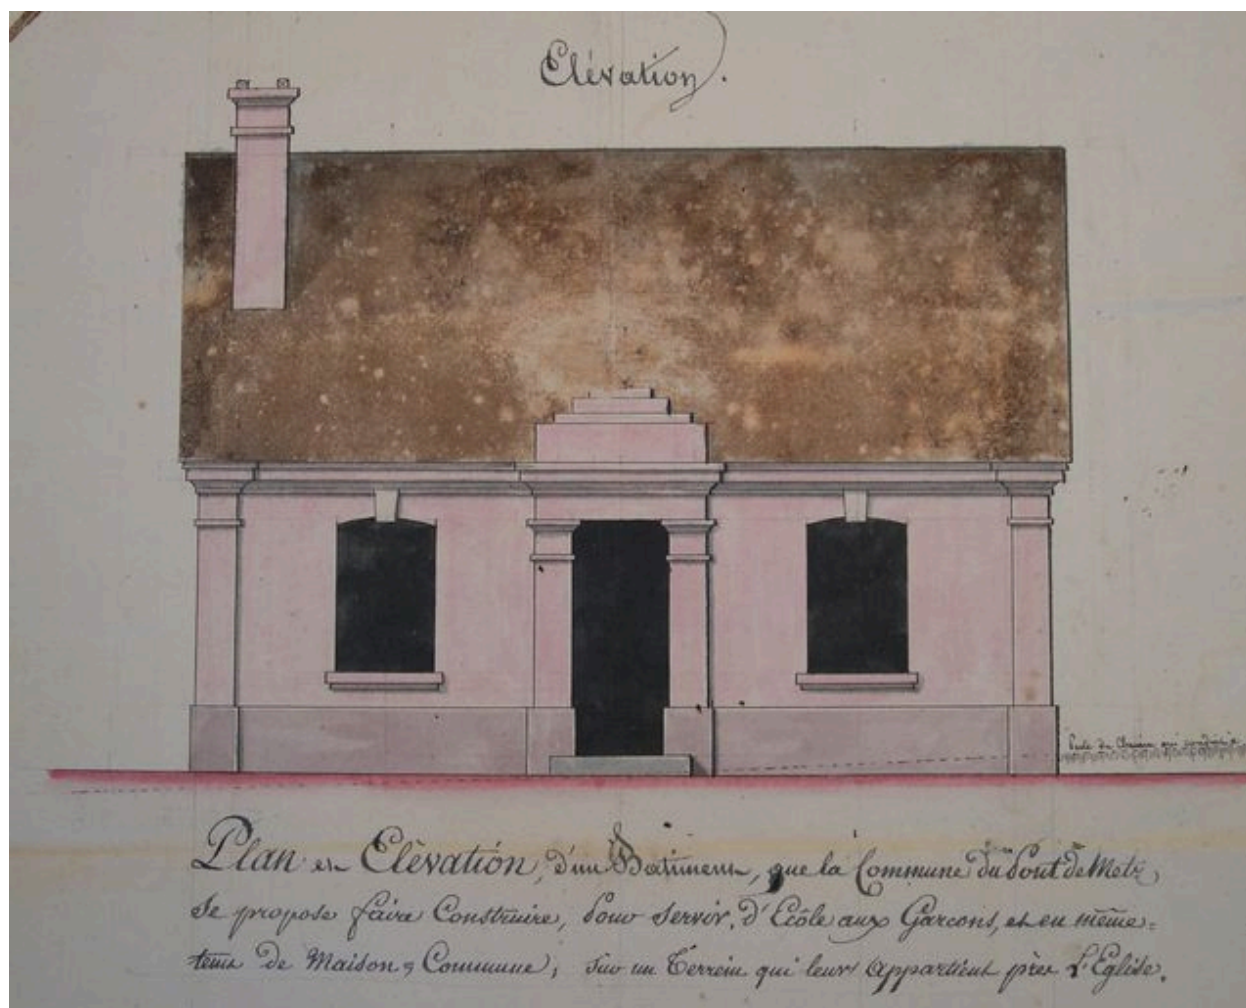 Elévation.
Pente du Chemin qui conduit
Plan en Elévation, d'un Batiment, que la Commune du Pont de Metz
Se propose faire Construire, Pour Servir, d'Ecôle aux Garcons, et en même=
tems de Maison, Commune, sur un Terrein qui leurs appartient près L'Eglise.